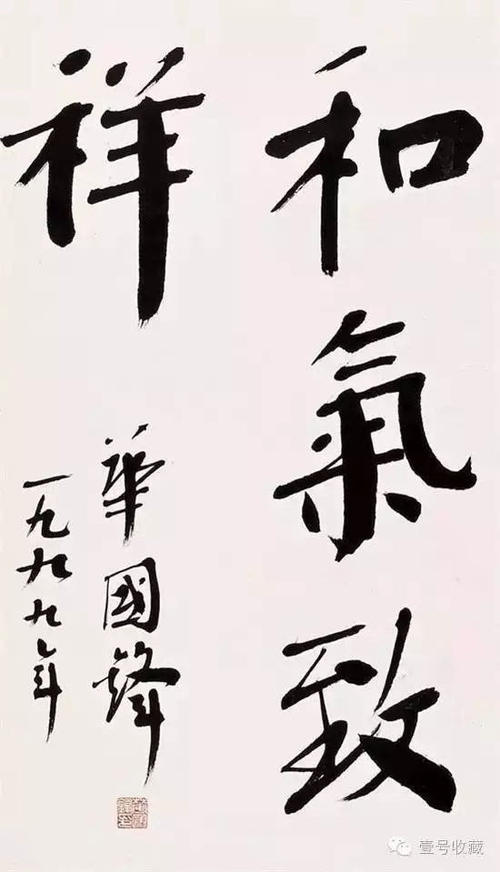 和氣致
祥
華國鋒
一九九九年
壹号收藏